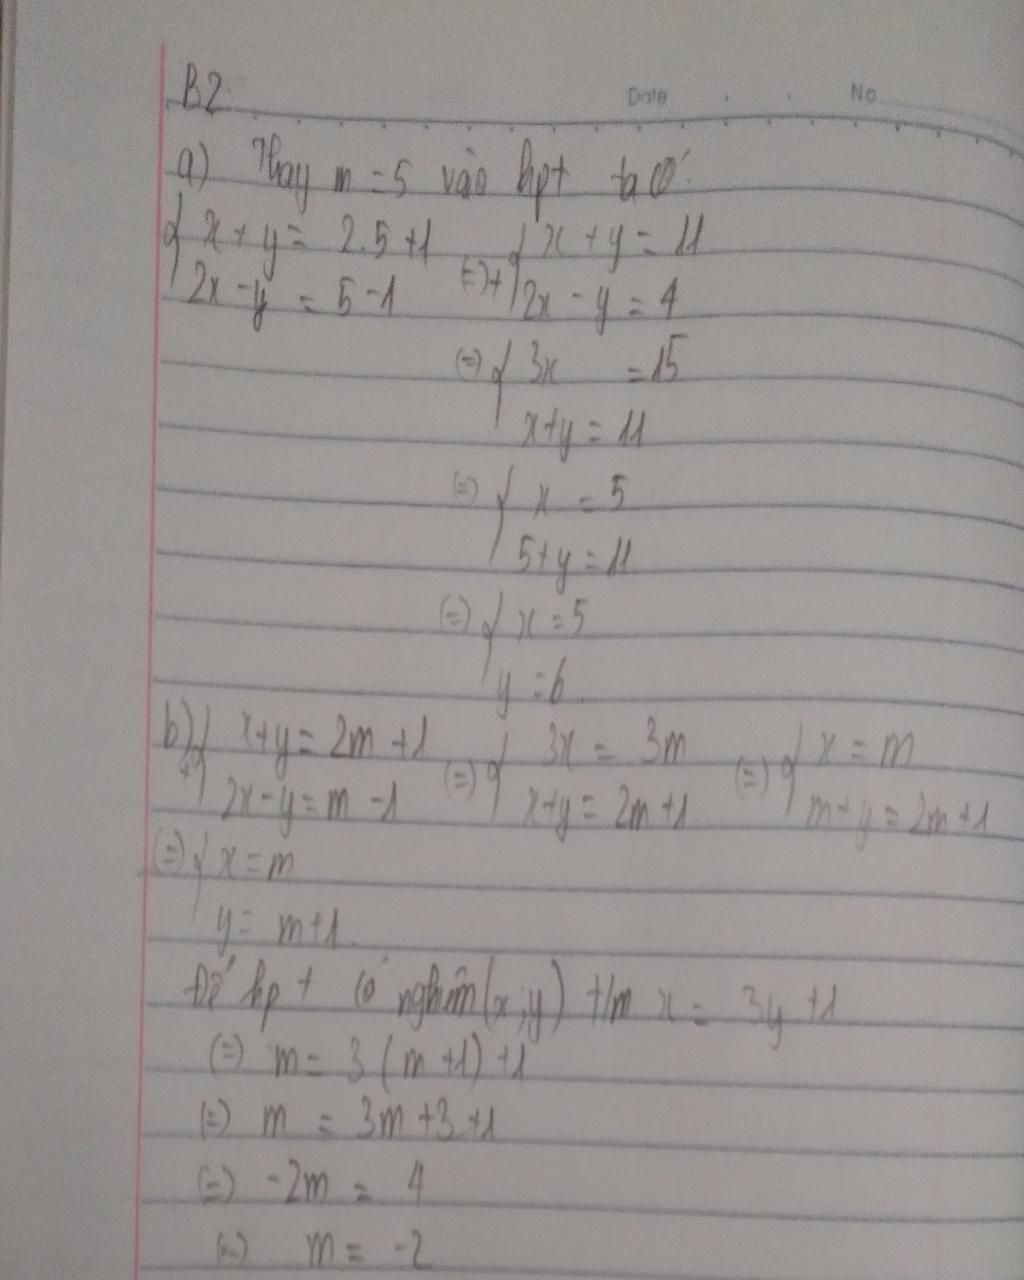 B2.
Date No
a) Thay m = 5 vào hpt ta có:
{ x + y = 2.5 + 1 (=) + { x + y = 11
2x - y = 5 - 1 2x - y = 4
(=) { 3x = 15
x + y = 11
(=) { x = 5
5 + y = 11
(=) { x = 5
y = 6
b) + { x + y = 2m + 1 (=) { 3x = 3m (=) { x = m
2x - y = m - 1 x + y = 2m + 1 m + y = 2m + 1
(=) { x = m
y = m + 1.
Để hpt có nghiệm (x; y) t/m x = 3y + 1
(=) m = 3 (m + 1) + 1
(=) m = 3m + 3 + 1
(=) - 2m = 4
(=) m = -2